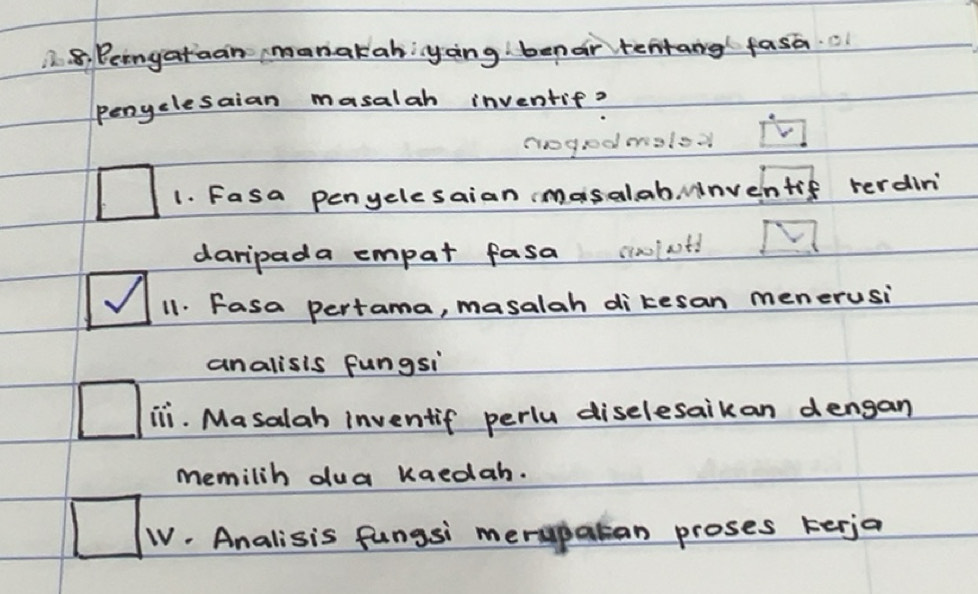 8. Pernyataan manakah yang benar tentang fasa
penyelesaian masalah inventif?
I. Fasa penyelesaian masalah inventif terdiri
daripada empat fasa
II. Fasa pertama, masalah dikesan menerusi
analisis fungsi
iii. Masalah inventif perlu diselesaikan dengan
memilih dua kaedah.
IV. Analisis fungsi merupakan proses kerja